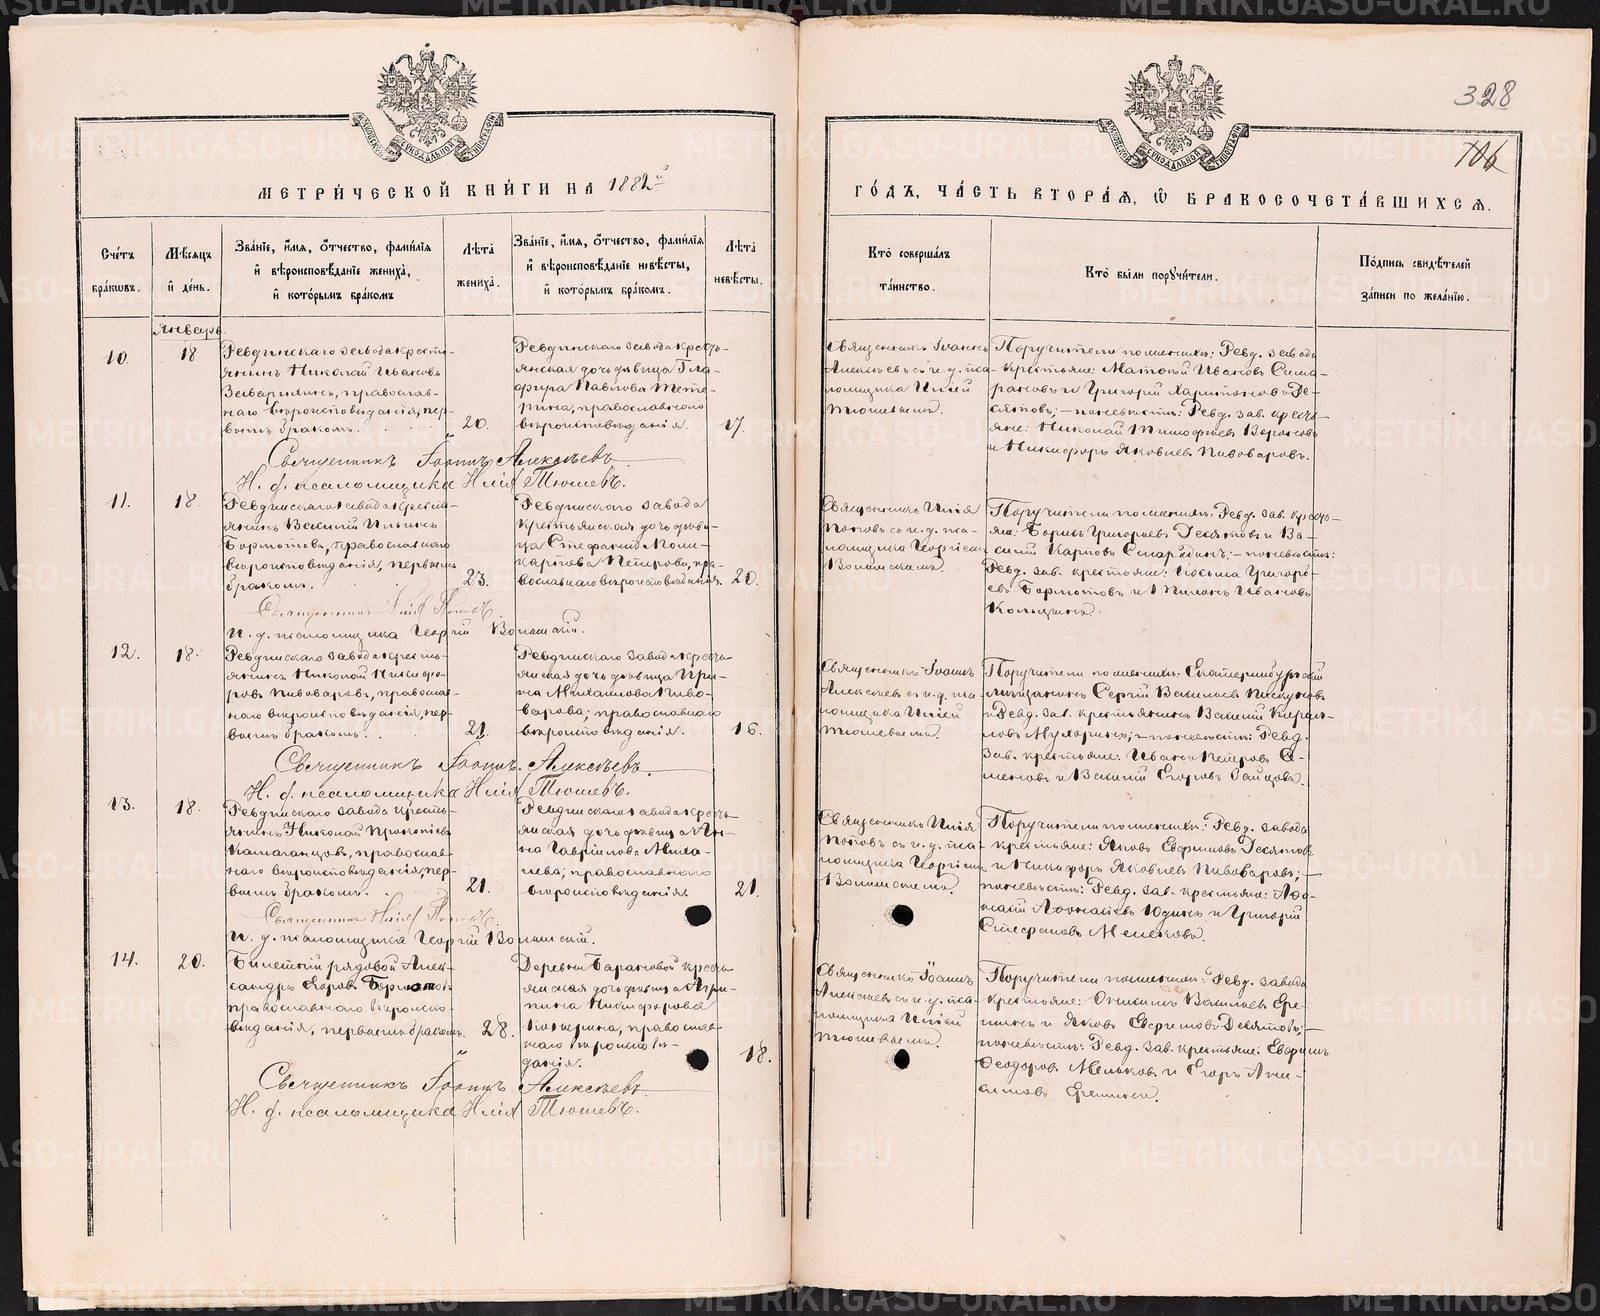 328
106
МЕТРИ́ЧЕСКОЙ КНИ́ГИ НА 1882й
ГО́ДЪ, ЧА́СТЬ ВТОРА́Я, Ѽ БРАКОСОЧЕТА́ВШИХСЯ.
Сче́тъ бра́ковъ.
Мѣ́сяцъ и҆ де́нь.
Зва́нїе, и҆́мя, ѻ҆́тчество, фами́лїя и҆ вѣроисповѣ́данїе жениха̀, и҆ кото́рымъ бра́комъ
Лѣ́та жениха̀.
Зва́нїе, и҆́мя, ѻ҆́тчество, фами́лїя и҆ вѣроисповѣ́данїе невѣ́сты, и҆ кото́рымъ бра́комъ.
Лѣ́та невѣ́сты.
Кто̀ соверша́лъ та́инство.
Кто̀ бы́ли поручи́тели.
По́дпись свидѣ́телей за́писи по жела́нїю.
Январь.
10.
18
Ревдинскаго завода кресть-
янинъ Николай Ивановъ
православ-
наго вѣроисповѣданія, пер-
вымъ бракомъ.
20.
Ревдинскаго завода кресть-
янская дочь дѣвица Гла-
фира Павлова Тете-
рина, православнаго
вѣроисповѣданія.
17.
Священникъ Іоаннъ
Алексѣевъ съ и. д. пса-
ломщика Иліей
Тюшевымъ.
Поручители по женихѣ: Ревд. завода
крестьяне: Матвѣй Ивановъ
и Григорій Харитоновъ Де-
сятовъ; – по невѣстѣ: Ревд. зав. кресть-
яне: Николай Тимофѣевъ
и Никифоръ Яковлевъ Пивоваровъ.
Священникъ Іоаннъ Алексѣевъ
И. д. псаломщика Илія Тюшевъ.
11.
18.
Ревдинскаго завода кресть-
янинъ Василій Ильинъ
Бормотовъ, православнаго
вѣроисповѣданія, первымъ
бракомъ.
23.
Ревдинскаго завода
крестьянская дочь дѣви-
ца Стефанида Поли-
карпова Петрова, пра-
вославнаго вѣроисповѣданія.
20.
Священникъ Илія
Поповъ съ и. д. пса-
ломщика Георгіемъ
Поручители по женихѣ: Ревд. зав. кресть-
яне: Борисъ Григорьевъ Десятовъ и Ва-
силій Карповъ – по невѣстѣ:
Ревд. зав. крестьяне: Косьма Григорь-
евъ Бормотовъ и Ивановъ
Священникъ Илія Поповъ
и. д. псаломщика Георгій
12.
18.
Ревдинскаго завода кресть-
янинъ Николай Никифо-
ровъ Пивоваровъ, православ-
наго вѣроисповѣданія, пер-
вымъ бракомъ.
21.
Ревдинскаго завода кресть-
янская дочь дѣвица Ири-
на Михайлова Пиво-
варова; православнаго
вѣроисповѣданія.
16.
Священникъ Іоаннъ
Алексѣевъ съ и. д. пса-
ломщика Иліей
Тюшевымъ.
Поручители по женихѣ: Екатеринбургскій
мѣщанинъ Сергій Васильевъ Пискуновъ
и Ревд. зав. крестьянинъ Василій
по невѣстѣ: Ревд.
зав. крестьяне: Иванъ Петровъ Се-
меновъ и Василій Егоровъ
Священникъ Іоаннъ Алексѣевъ
И. д. псаломщика Илія Тюшевъ.
13.
18.
Ревдинскаго завода кресть-
янинъ Николай Прокопіевъ
Каташанцовъ, православ-
наго вѣроисповѣданія, пер-
вымъ бракомъ.
21.
Ревдинскаго завода кресть-
янская дочь дѣвица Ан-
на Гавріилова Миха-
лева; православнаго
вѣроисповѣданія.
21.
Священникъ Илія
Поповъ съ и. д. пса-
ломщика Георгіемъ
Поручители по женихѣ: Ревд. завода
крестьяне: Яковъ Евфимовъ Десятовъ
и Никифоръ Яковлевъ Пивоваровъ; –
по невѣстѣ: Ревд. зав. крестьяне: Афо-
насій Афонасіевъ Юдинъ и Григорій
Стефановъ Мельковъ.
Священникъ Илія Поповъ
и. д. псаломщика Георгій
14.
20.
Билетный рядовой Алек-
сандръ
православнаго вѣроиспо-
вѣданія, первымъ бракомъ.
28.
Деревни Барановой кресть-
янская дочь дѣвица Агри-
пина Никифорова
православ-
наго вѣроисповѣ-
данія.
18.
Священникъ Іоаннъ
Алексѣевъ съ и. д. пса-
ломщика Иліей
Тюшевымъ.
Поручители по женихѣ: Ревд. завода
крестьяне: Онисимъ Васильевъ Ере-
минъ и Яковъ Евфимовъ Десятовъ; –
по невѣстѣ: Ревд. зав. крестьяне: Евфимъ
Феодоровъ Мельковъ и Егоръ
Священникъ Іоаннъ Алексѣевъ
И. д. псаломщика Илія Тюшевъ.
METRIKI.GASO-URAL.RU